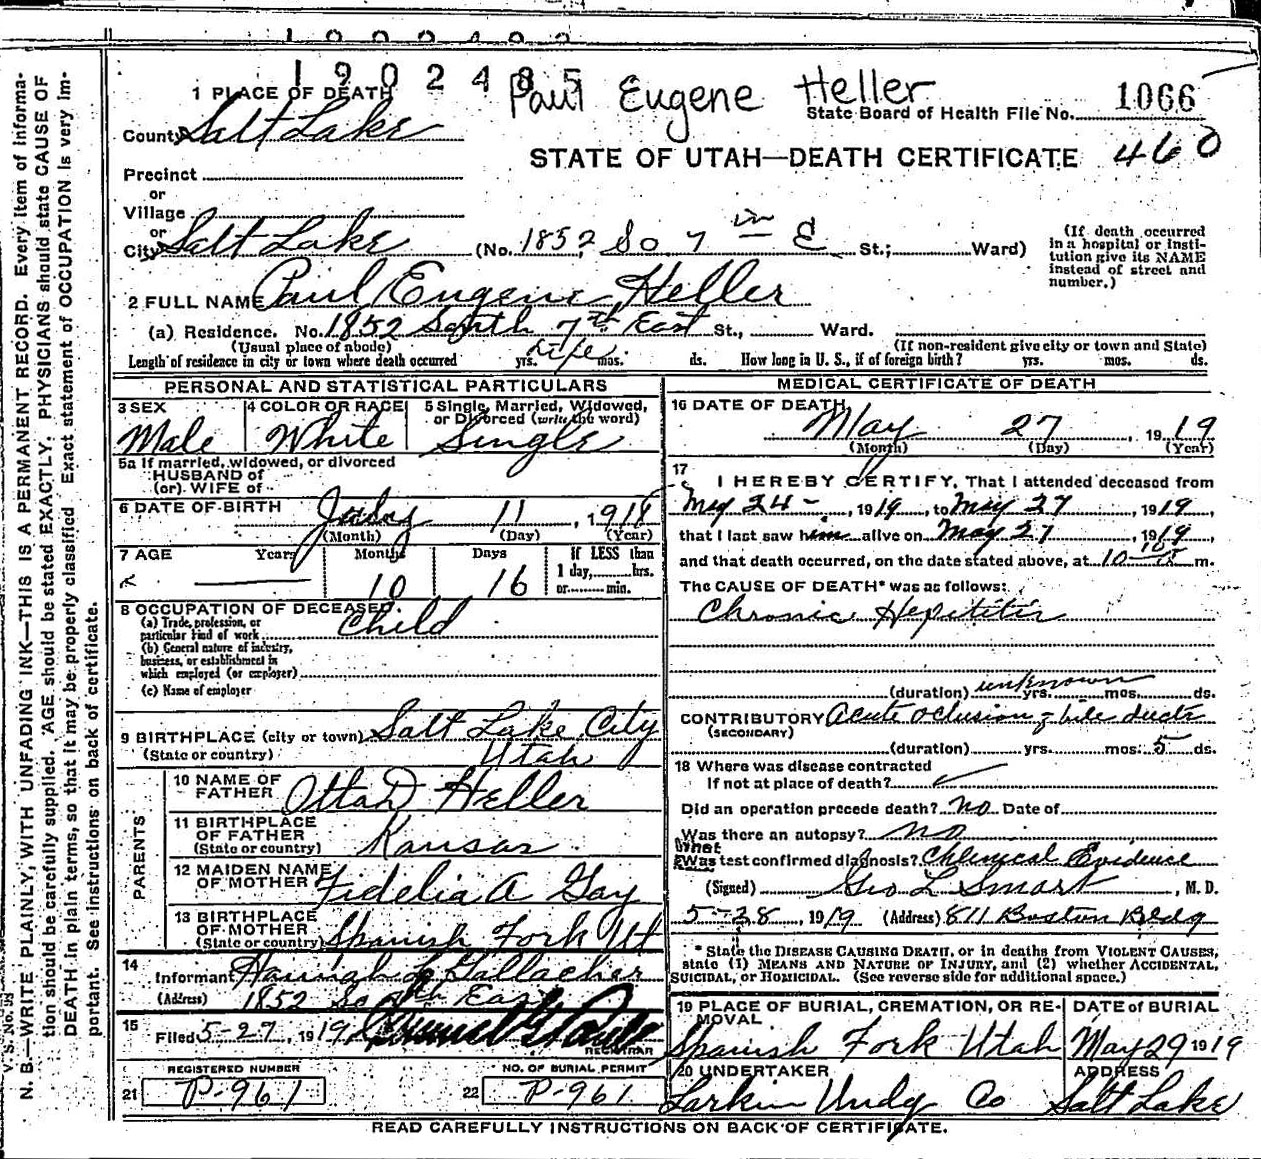 1902485
Paul Eugene Heller
1 PLACE OF DEATH
State Board of Health File No. 1066
County Salt Lake
STATE OF UTAH—DEATH CERTIFICATE 460
Precinct
or
Village
or
City Salt Lake (No. 1852 So 7 th E St.; Ward)
(If death occurred in a hospital or insti-
tution give its NAME instead of street and number.)
2 FULL NAME Paul Eugene Heller
(a) Residence. No. 1852 South 7th East St., Ward.
(Usual place of abode) (If non-resident give city or town and State)
Length of residence in city or town where death occurred Life yrs. mos. ds. How long in U. S., if of foreign birth? yrs. mos. ds.
PERSONAL AND STATISTICAL PARTICULARS
3 SEX Male
4 COLOR OR RACE White
5 Single, Married, Widowed, or Divorced (write the word) Single
5a If married, widowed, or divorced
HUSBAND of
(or) WIFE of
6 DATE OF BIRTH 11, 1918
(Month) (Day) (Year)
7 AGE Years Months Days If LESS than
10 16 1 day, hrs.
or min.
8 OCCUPATION OF DECEASED.
(a) Trade, profession, or
particular kind of work Child
(b) General nature of industry,
business, or establishment in
which employed (or employer)
(c) Name of employer
9 BIRTHPLACE (city or town) Salt Lake City
(State or country) Utah
PARENTS
10 NAME OF FATHER Otto D Heller
11 BIRTHPLACE OF FATHER (State or country) Kansas
12 MAIDEN NAME OF MOTHER Fidelia A Gay
13 BIRTHPLACE OF MOTHER (State or country) Spanish Fork Ut
14 Informant Hannah L Gallacher
(Address) 1852 So 7th East
15 Filed 5-27, 1919
REGISTRAR
REGISTERED NUMBER
21 P-961
NO. OF BURIAL PERMIT
22 P-961
MEDICAL CERTIFICATE OF DEATH
16 DATE OF DEATH
May 27, 1919
(Month) (Day) (Year)
17 I HEREBY CERTIFY, That I attended deceased from
May 24-, 1919, to May 27, 1919,
that I last saw him alive on May 27, 1919,
and that death occurred, on the date stated above, at 10 m.
The CAUSE OF DEATH* was as follows:
Chronic Hepititis
(duration) unknown yrs. mos. ds.
CONTRIBUTORY Acute oclusion of bile ducts
(SECONDARY)
(duration) yrs. mos. 5 ds.
18 Where was disease contracted
If not at place of death?
Did an operation precede death? no Date of
Was there an autopsy? no
What test confirmed diagnosis? Chemical Evidence
(Signed) Geo L Smart, M. D.
5-28, 1919 (Address) 811 Boston Bldg
*State the DISEASE CAUSING DEATH, or in deaths from VIOLENT CAUSES,
state (1) MEANS AND NATURE OF INJURY, and (2) whether ACCIDENTAL,
SUICIDAL, or HOMICIDAL. (See reverse side for additional space.)
19 PLACE OF BURIAL, CREMATION, OR RE-
MOVAL
Spanish Fork Utah
DATE of BURIAL
May 29 1919
20 UNDERTAKER
Larkin Undg Co
ADDRESS
Salt Lake
READ CAREFULLY INSTRUCTIONS ON BACK OF CERTIFICATE.
V. S. No.
N. B.—WRITE PLAINLY, WITH UNFADING INK—THIS IS A PERMANENT RECORD. Every item of informa-
tion should be carefully supplied. AGE should be stated EXACTLY. PHYSICIANS should state CAUSE OF
DEATH in plain terms, so that it may be properly classified. Exact statement of OCCUPATION is very im-
portant. See instructions on back of certificate.